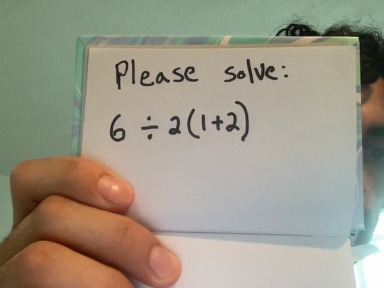 Please solve:
6 ÷ 2(1+2)